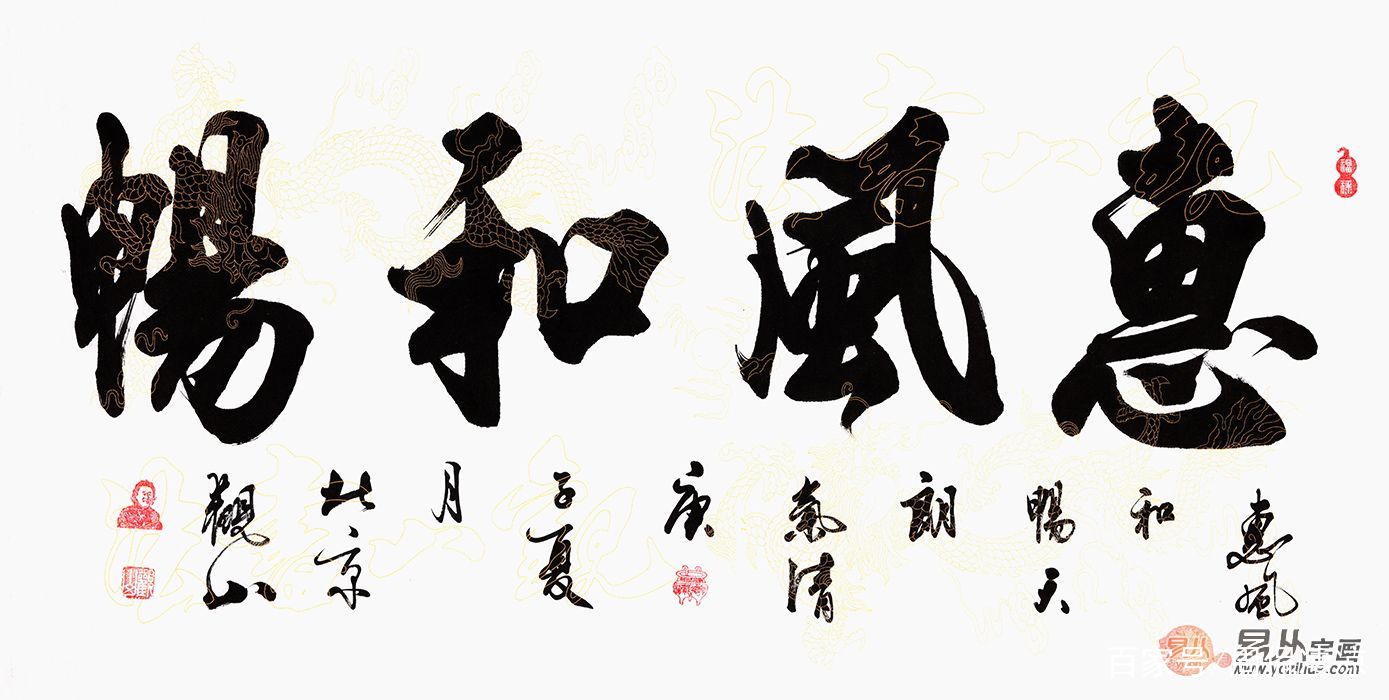 惠風和暢
惠風
和
暢天
朗
氣清
庚
子夏
月
北京
觀山
福祿
易从字画
www.yczihua.com
百家号